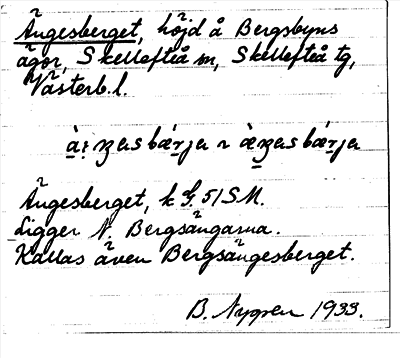 Ängesberget, höjd å Bergsbyns
ägor, Skellefteå sn, Skellefteå tg,
Västerb.l.
Ängesberget, k G. 51 S.M.
Ligger N. Bergsängarna.
Kallas även Bergsängesberget.
B. Nygren 1933.